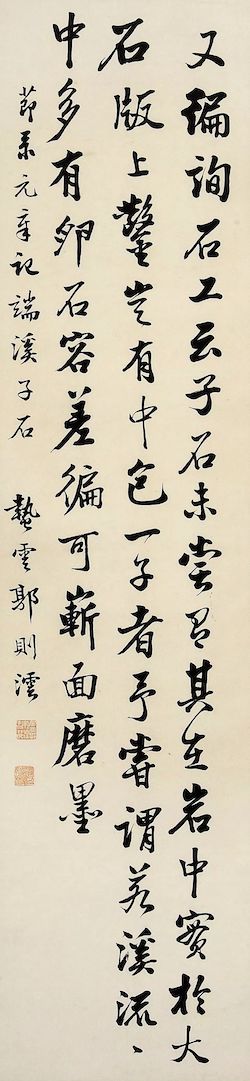 又編詢石工云子石未嘗有其在岩中實於大
石版上鑿豈有中包一子者予嘗謂若溪流、
中多有卵石容差徧可嶄面磨墨
節录元章記端溪子石 蟄雲郭則澐